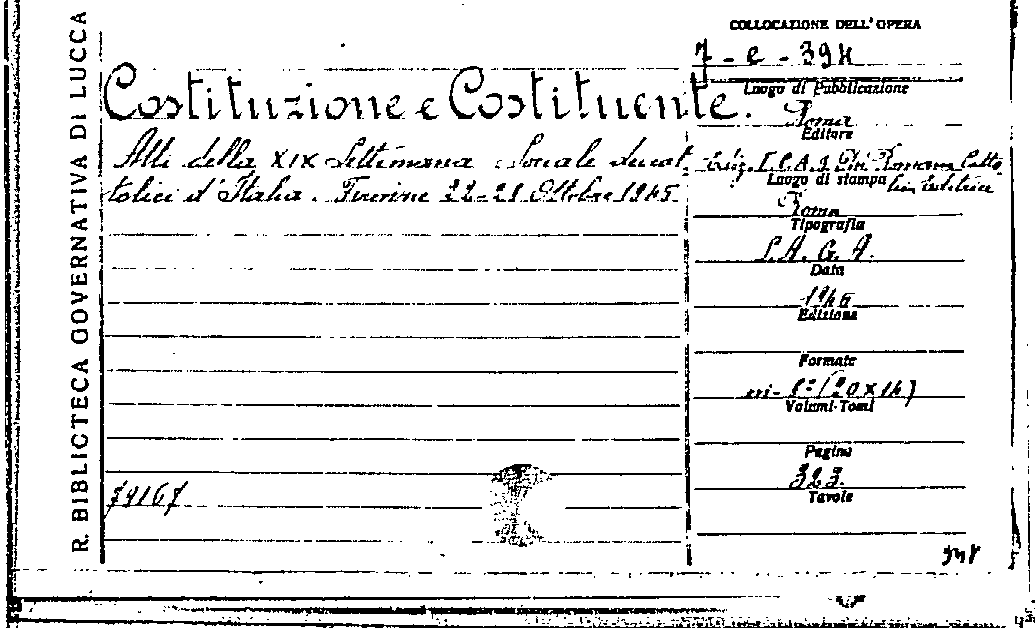 R. BIBLIOTECA GOVERNATIVA DI LUCCA
Costituzione e Costituente.
Atti della XIX Settimana Sociale dei cat-
tolici d'Italia. Firenze 22-28 Ottobre 1945
74167
COLLOCAZIONE DELL'OPERA
7 - e - 394
Luogo di Pubblicazione
Roma
Editore
Ediz. I.C.A.S.
Luogo di stampa
Roma
Tipografia
S.A.G.A.
Data
1946
Edizione
Formato
(20 x 14)
Volumi-Tomi
Pagine
323.
Tavole